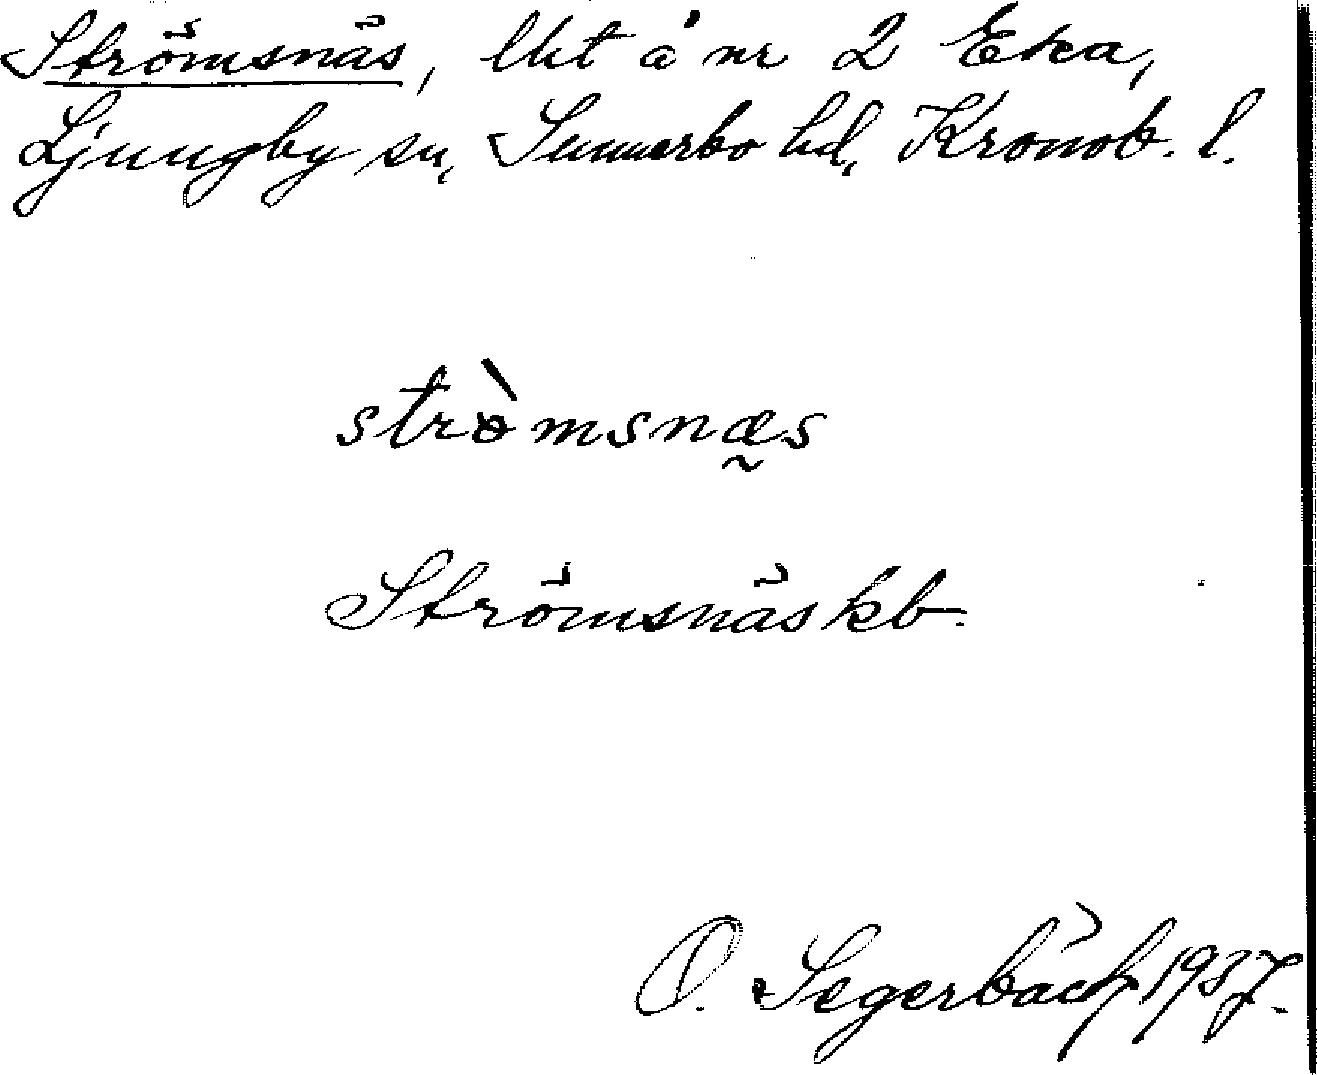 Strömsnäs, lht å nr 2 Eka,
Ljungby sn, Sunnerbo hd, Kronob. l.
strò̀msnæ̰s
Strömsnäs kb.
O. Segerbäck 1937.